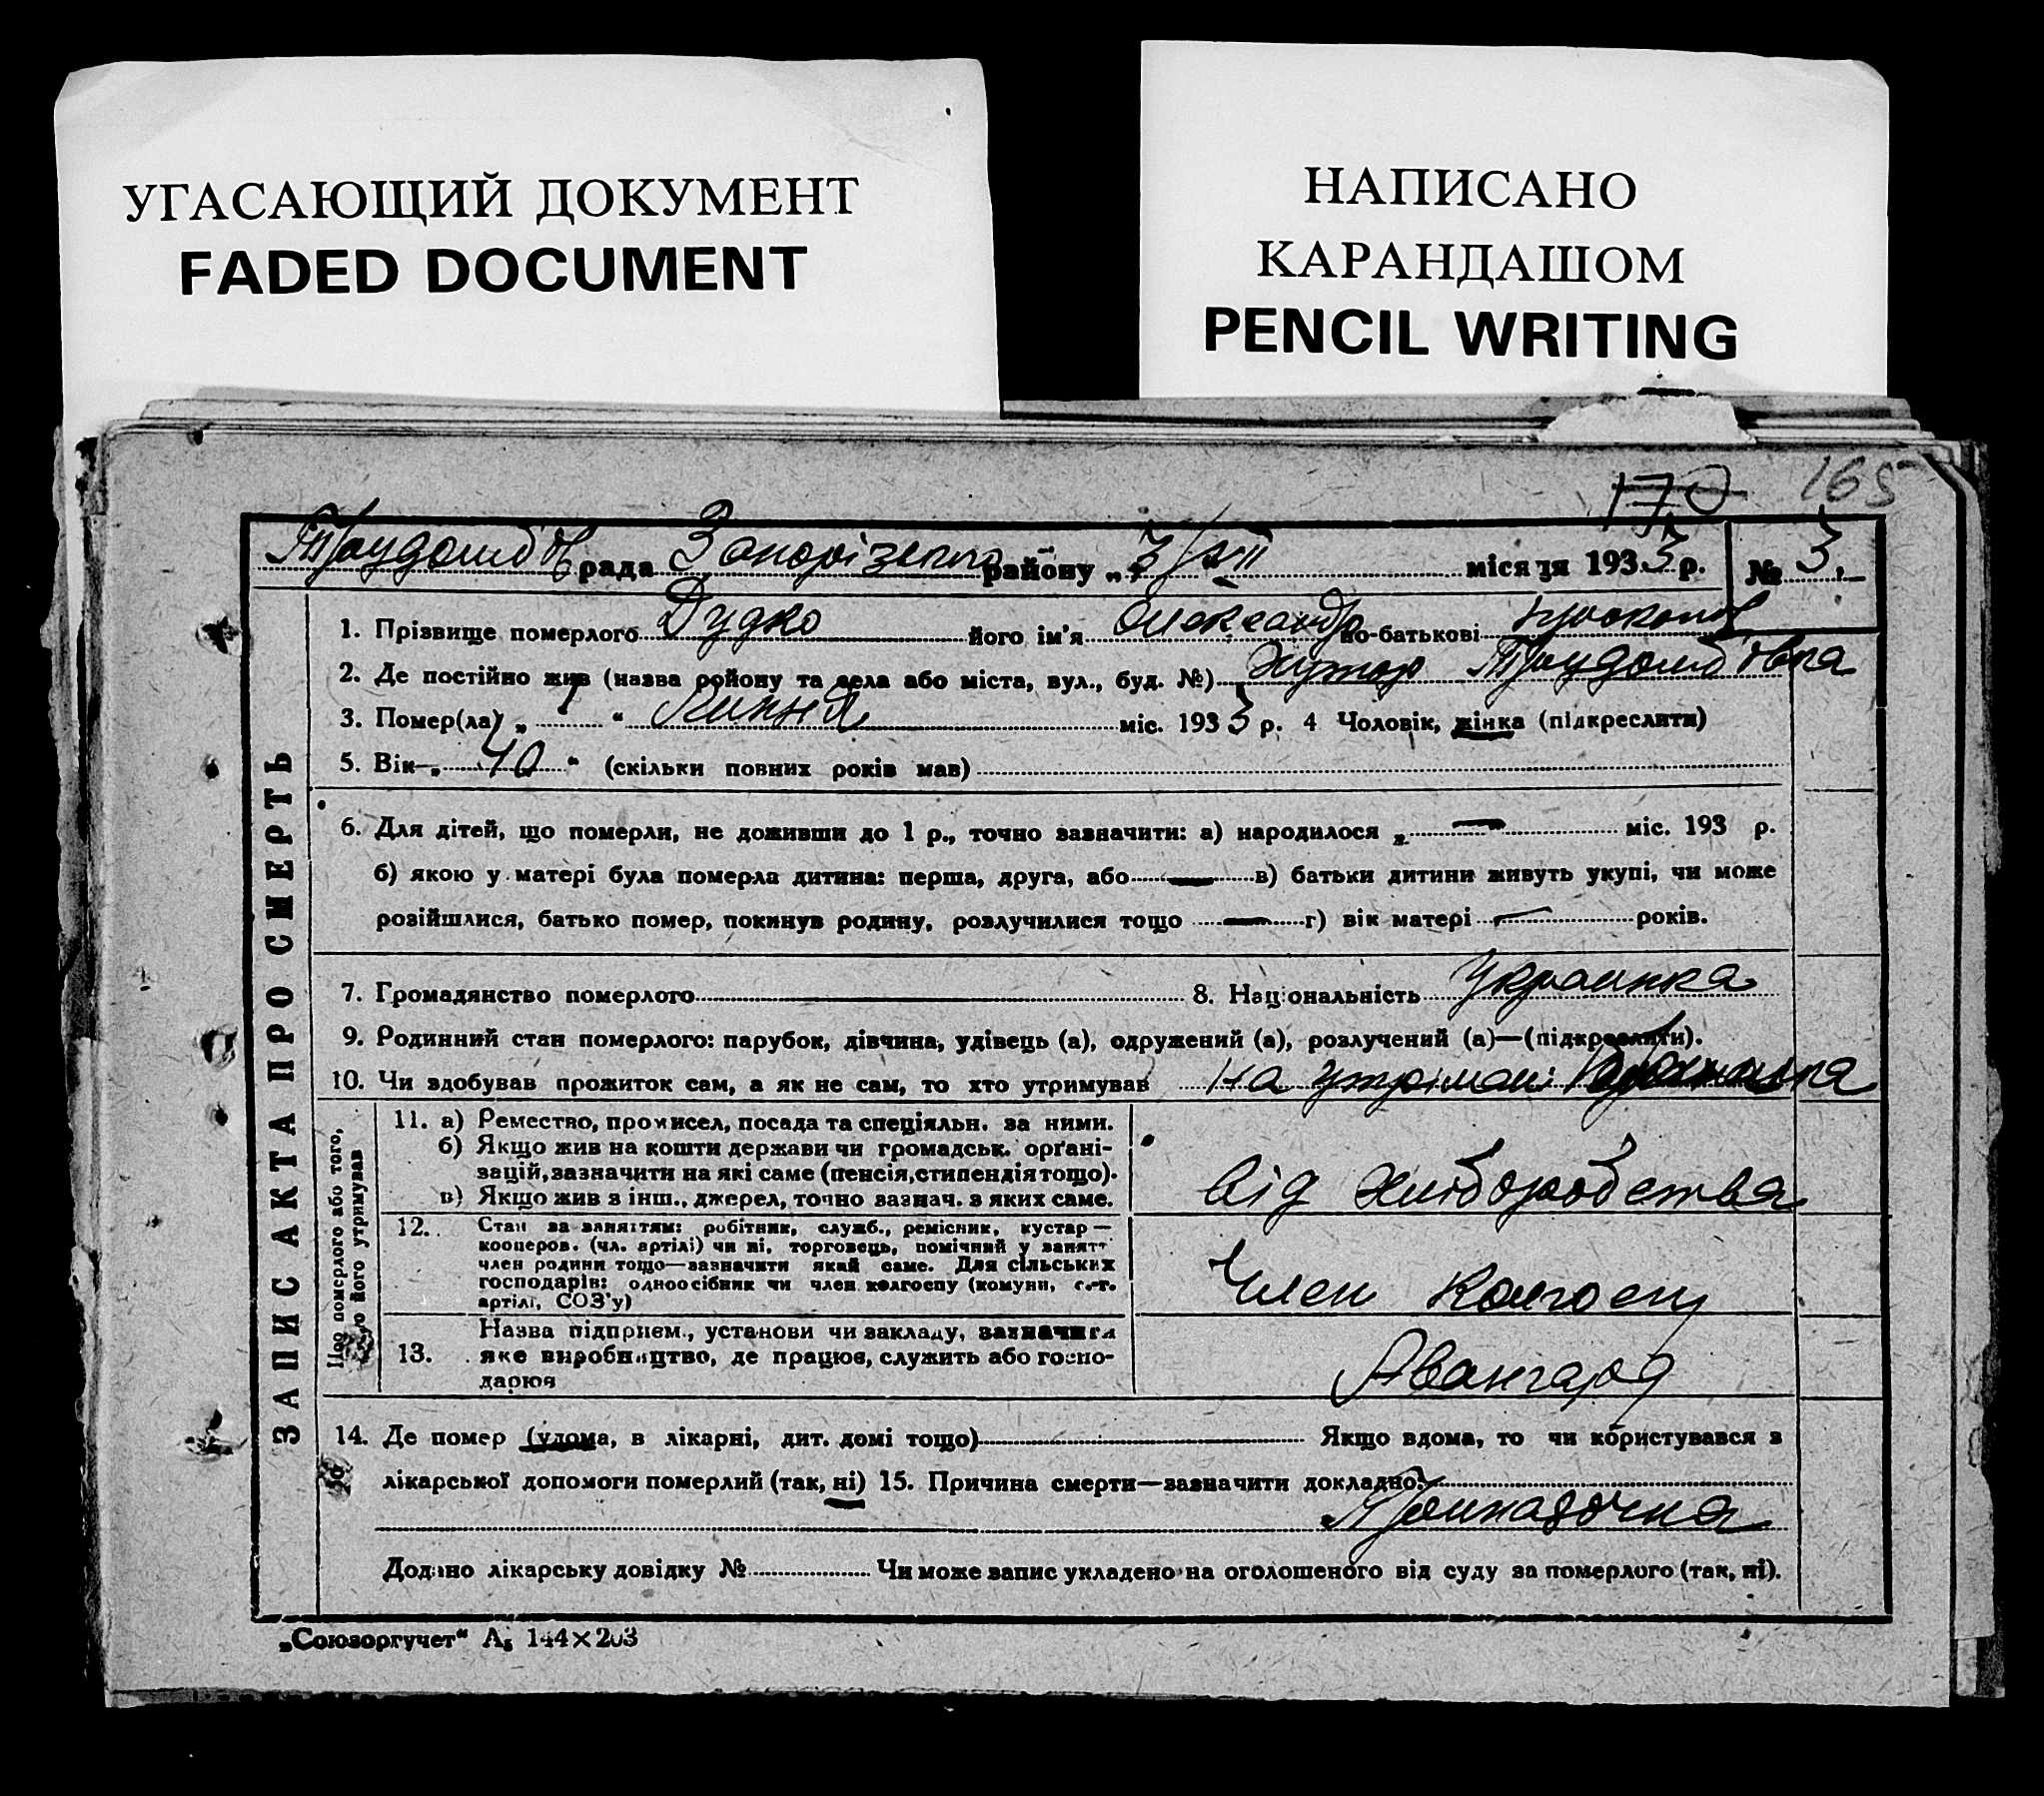 УГАСАЮЩИЙ ДОКУМЕНТ
FADED DOCUMENT
НАПИСАНО
КАРАНДАШОМ
PENCIL WRITING
170 165
рада Запорізького району „3/VII місяця 1933 р. № 3.
1. Прізвище померлого Дудко його ім'я Олександр по-батькові
2. Де постійно жив (назва району та села або міста, вул., буд. №) Хутор Трудолюб'івка
3. Помер(ла) „ 1 “ Липня міс. 1933 р. 4 Чоловік, жінка (підкреслити)
5. Вік „ 40 “ (скільки повних років мав)
6. Для дітей, що померли, не доживши до 1 р., точно зазначити: а) народилося „ — міс. 193 р.
б) якою у матері була померла дитина: перша, друга, або — в) батьки дитини живуть укупі, чи може
розійшлися, батько помер, покинув родину, розлучилися тощо — г) вік матері — років.
7. Громадянство померлого 8. Національність Украинка
9. Родинний стан померлого: парубок, дівчина, удівець (а), одружений (а), розлучений (а)—(підкреслити).
10. Чи здобував прожиток сам, а як не сам, то хто утримував на утримані
ЗАПИС АКТА ПРО СМЕРТЬ
Про померлого або того, хто його утримував
11. а) Ремество, промисел, посада та спеціяльн. за ними.
б) Якщо жив на кошти держави чи громадськ. орґані-
зацій, зазначити на які саме (пенсія, стипендія тощо).
в) Якщо жив з інш., джерел, точно зазнач. з яких саме.
від хліборобства
12. Стан за заняттям: робітник, служб., ремісник, кустар —
кооперов. (чл. артілі) чи ні, торговець, помічний у занятт
член родини тощо—зазначити який саме. Для сільських
господарів: одноосібник чи член колгоспу (комуни, с.-г.
артілі, СОЗ'у)
Член колгоспу
Назва підприєм., установи чи закладу, зазначити
13. яке виробництво, де працює, служить або госпо-
дарює
Авангард
14. Де помер (удома, в лікарні, дит. домі тощо) Якщо вдома, то чи користувався з
лікарської допомоги померлий (так, ні) 15. Причина смерти—зазначити докладно:
Додано лікарську довідку № Чи може запис укладено на оголошеного від суду за померлого (так, ні).
„Союзоргучет“ А5 144×203